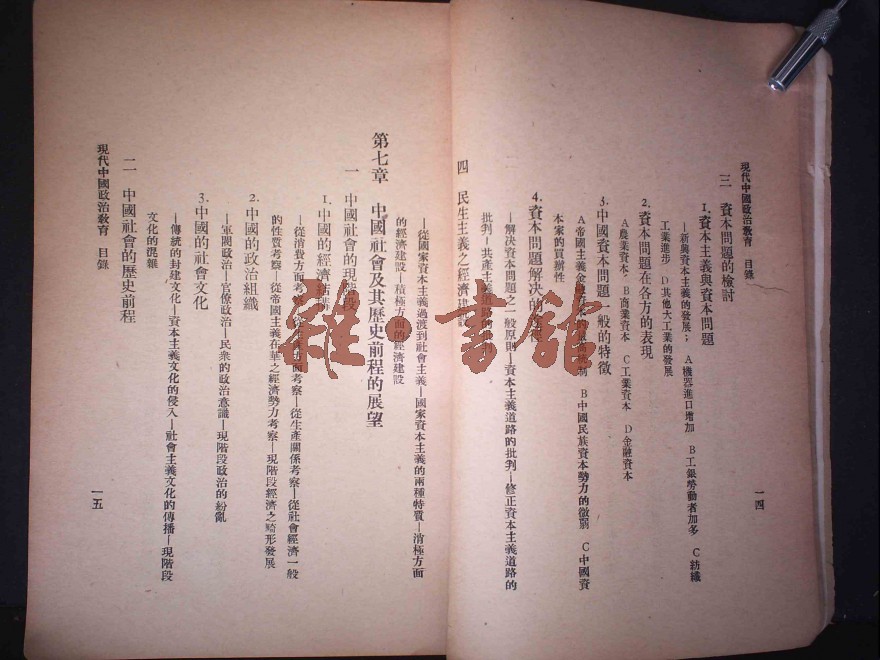 現代中國政治敎育　目錄
三　資本問題的檢討
1. 資本主義與資本問題
—新興資本主義的發展；　A 機器進口增加　B 工銀勞動者加多　C 紡織
工業進步　D 其他大工業的發展
2. 資本問題在各方的表現
A 農業資本，B 商業資本　C 工業資本　D 金融資本
3. 中國資本問題一般的特徵
A 帝國主義金融資本的　B 中國民族資本勢力的微弱　C 中國資
本家的買辦性
4. 資本問題解決的
—解决資本問題之一般原則—資本主義道路的批判—修正資本主義道路的
批判—共產主義道路的批
四　民生主義之經濟建設
一四
—從國家資本主義過渡到社會主義—國家資本主義的兩種特質—消極方面
的經濟建設—積極方面的經濟建設
第七章　中國社會及其歷史前程的展望
一　中國社會的現階段
1. 中國的經濟結構
—從消費方面考察—從生產方面考察—從生產關係考察—從社會經濟一般
的性質考察—從帝國主義在華之經濟勢力考察—現階段經濟之畸形發展
2. 中國的政治組織
—軍閥政治—官僚政治—民衆的政治意識—現階段政治的紛亂
3. 中國的社會文化
—傳統的封建文化—資本主義文化的侵入—社會主義文化的傳播—現階段
文化的混雜
二　中國社會的歷史前程
現代中國政治敎育　目錄
一五
雜書館